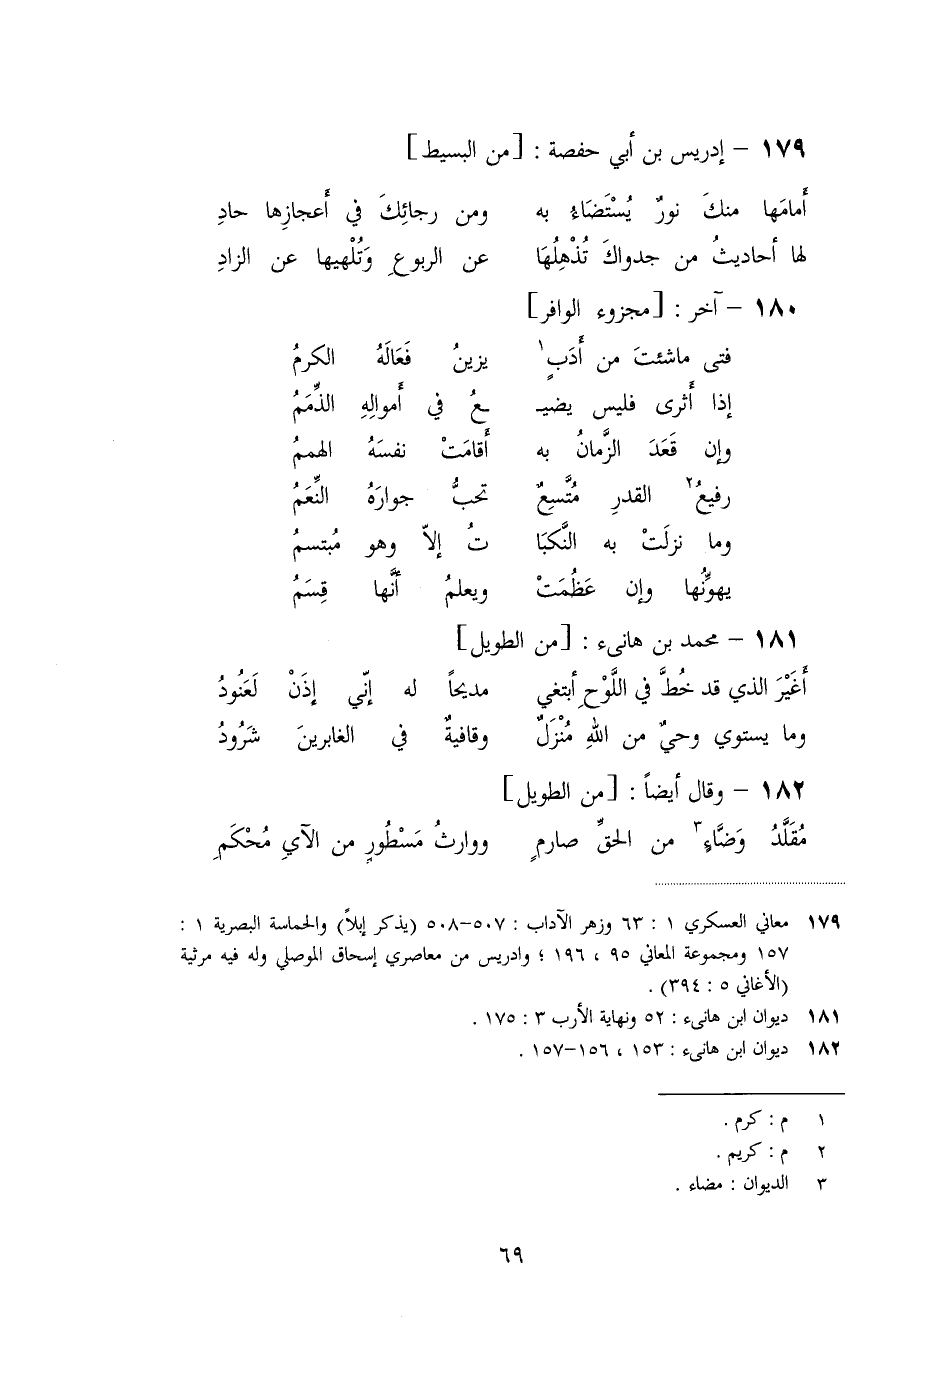 ١٧٩ – إدريس بن أبي حفصة : [من البسيط]
أَمامَها منكَ نورٌ يُسْتَضَاءُ به ومن رجائِكَ في أَعجازِها حادِ
لها أحاديثُ من جدواكَ تُذْهِلُهَا عن الربوعِ وَتُلْهيها عن الزادِ
١٨٠ – آخر : [مجزوء الوافر]
فتى ماشئتَ من أَدَبٍ١ يزينُ فَعَالَهُ الكرمُ
إذا أَثرى فليس يضيـ ـعُ في أَموالِهِ الذِّمَمُ
وإن قَعَدَ الزَّمانُ به أَقامَتْ نفسَهُ الهممُ
رفيعُ٢ القدرِ مُتَّسِعٌ تحبُّ جوارَهُ النِّعَمُ
وما نزلَتْ به النَّكبَا تُ إلاّ وهو مُبتسمُ
يهوِّنُها وإن عَظُمَتْ ويعلمُ أنَّها قِسَمُ
١٨١ – محمد بن هانىء : [من الطويل]
أَغَيْرَ الذي قد خُطَّ في اللَّوْحِ أبتغي مديحاً له إنّي إذَنْ لَعَنُودُ
وما يستوي وحيٌ من اللهِ مُنْزَلٌ وقافيةٌ في الغابرينَ شَرُودُ
١٨٢ – وقال أيضاً : [من الطويل]
مُقَلَّدُ وَضَّاءٍ٣ من الحقِّ صارمٍ ووارثُ مَسْطُورٍ من الآيِ مُحْكَمِ
١٧٩ معاني العسكري ١ : ٦٣ وزهر الآداب : ٥٠٧–٥٠٨ (يذكر إبلاً) والحماسة البصرية ١ :
١٥٧ ومجموعة المعاني ٩٥ ، ١٩٦ ؛ وادريس من معاصري إسحاق الموصلي وله فيه مرثية
(الأغاني ٥ : ٣٩٤) .
١٨١ ديوان ابن هانىء : ٥٢ ونهاية الأرب ٣ : ١٧٥ .
١٨٢ ديوان ابن هانىء : ١٥٣ ، ١٥٦–١٥٧ .
١ م : كرم .
٢ م : كريم .
٣ الديوان : مضاء .
٦٩